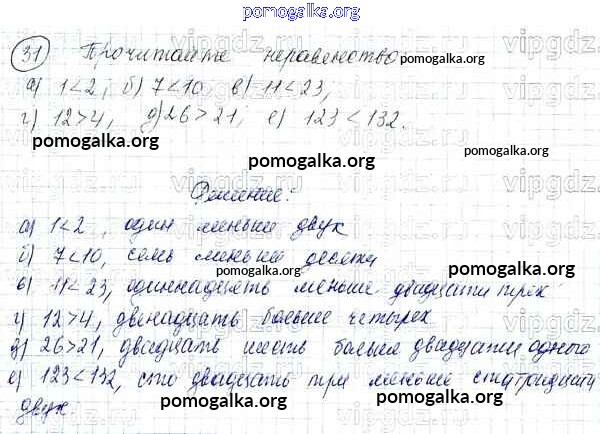 pomogalka.org
31 Прочитайте неравенство: pomogalka.org
а) 1<2, б) 7<10, в) 11<23,
г) 12>4, д) 26>21, е) 123<132.
pomogalka.org pomogalka.org pomogalka.org
Решение:
а) 1<2, один меньше двух
б) 7<10, семь меньше десяти
pomogalka.org pomogalka.org
в) 11<23, одиннадцать меньше двадцати трех
г) 12>4, двенадцать больше четырех
д) 26>21, двадцать шесть больше двадцати одного
е) 123<132, сто двадцать три меньше ста тридцати
двух.
pomogalka.org
pomogalka.org